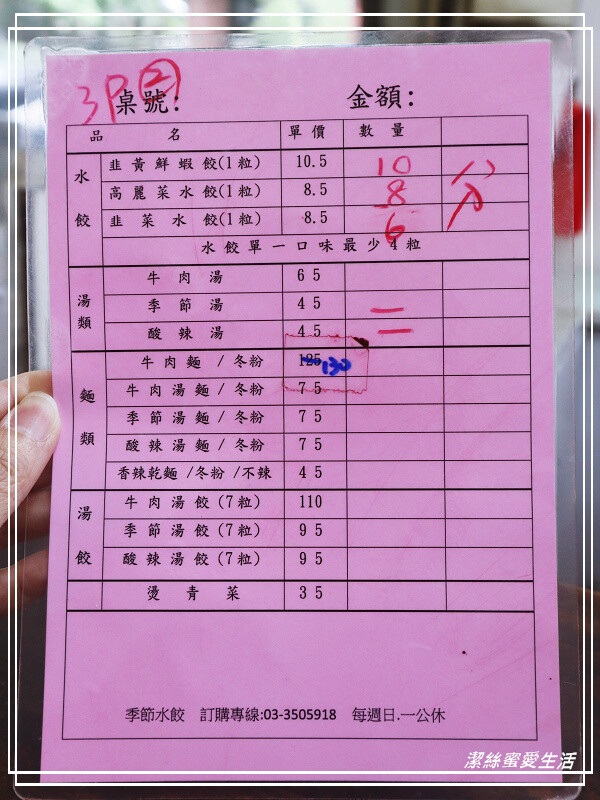 3P②
桌號: 金額:
品名 單價 數量
水餃
韭黃鮮蝦餃(1粒) 10.5 10
高麗菜水餃(1粒) 8.5 8
韭菜水餃(1粒) 8.5 6
水餃單一口味最少4粒
湯類
牛肉湯 65
季節湯 45 一
酸辣湯 45 一
麵類
牛肉麵 / 冬粉 125 130
牛肉湯麵 / 冬粉 75
季節湯麵 / 冬粉 75
酸辣湯麵 / 冬粉 75
香辣乾麵 /冬粉 /不辣 45
湯餃
牛肉湯餃(7粒) 110
季節湯餃(7粒) 95
酸辣湯餃(7粒) 95
燙青菜 35
季節水餃 訂購專線:03-3505918 每週日.一公休
潔絲蜜愛生活